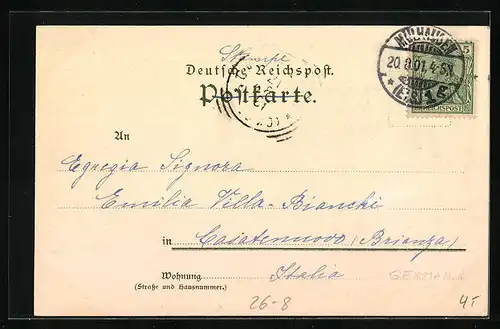 Stampe
Deutsche Reichspost.
Postkarte.
MÜLHAUSEN
5
20.8.01. 4-5N
* (ELS) 1 g
REICHSPOST
An
Egregia Signora
Emilia Villa-Bianchi
in Casatenuovo (Brianza)
Wohnung Italia
(Straße und Hausnummer.)
GERMANIA
26-8
4,-